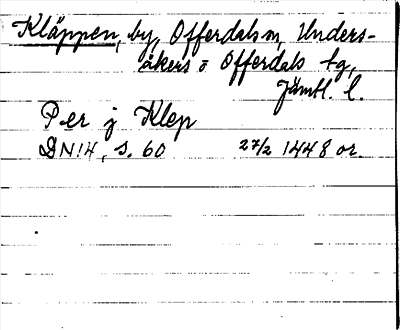 Kläppen, by, Offerdals sn, Unders-
åkers o Offerdals tg,
Jämtl. l.
Per j Klep
DN14, s. 60 27/2 1448 or.